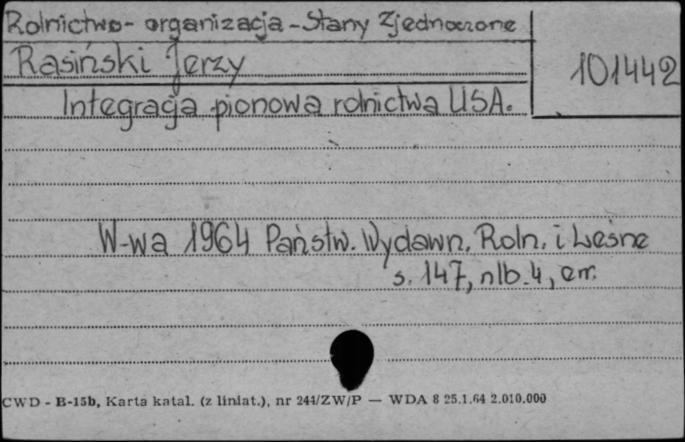 Rolnictwo - organizacja - Stany Zjednoczone
Rasiński Jerzy
101442
Integracja pionowa rolnictwa USA.
W-wa 1964 Państw. Wydawn. Roln. i Leśne
s. 147, nlb. 4, err.
CWD - B-15b, Karta katal. (z liniat.), nr 244/ZW/P — WDA 8 25.1.64 2.010.000